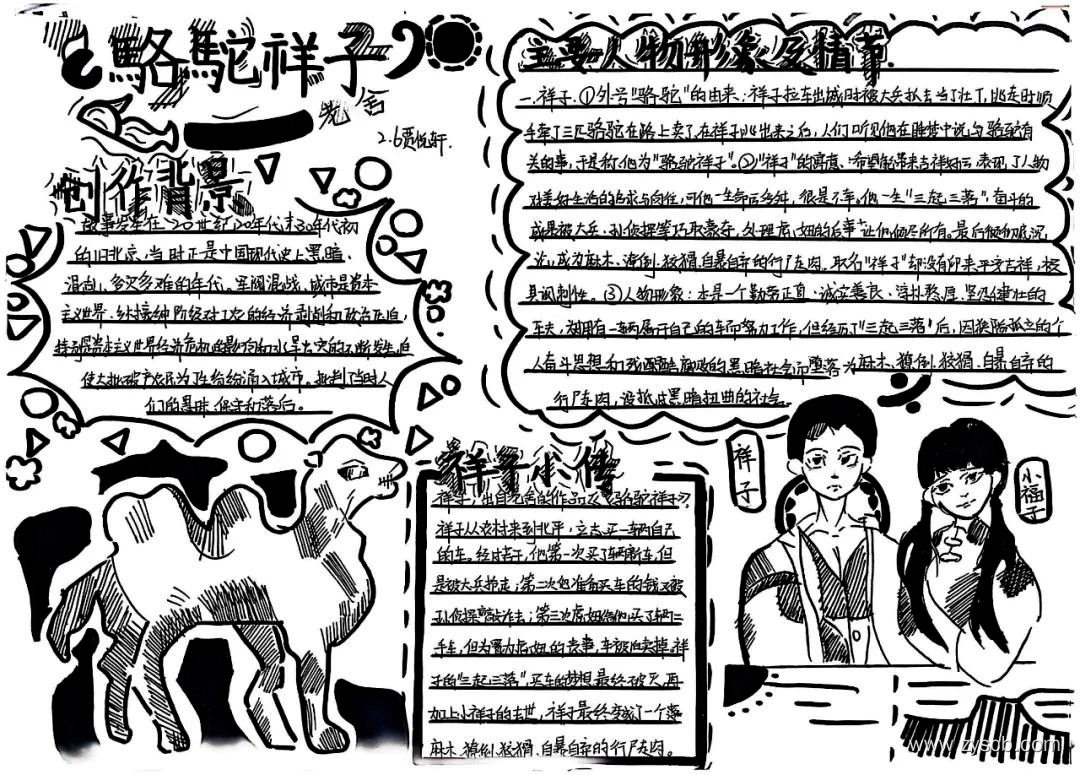 駱駝祥子
老舍
2.6贾
创作背景
故事发生在20世纪20年代末30年代初
的旧北京,当时正是中国现代史上黑暗、
混乱、多灾多难的年代。军阀混战、城市是资本
主义世界、外接绅阶经对工农的经济剥削和政治压迫,
特别受资本主义世界经济危机的影响和水旱虫灾的不断发生,迫
使大批破产农民为了生纷纷涌入城市。批判了当时人
们的愚昧、保守和落后。
主要人物形象及情节
一.祥子.①外号"骆驼"的由来:祥子拉车出城时被大兵抓去当了壮丁,逃走时顺
手牵了三匹骆驼在路上卖了.在祥子逃出来之后,人们听见他在睡梦中说与骆驼有
关的事,于是称他为"骆驼祥子"。②"祥子"的寓意:希望能带来吉祥好运,表现了人物
对美好生活的追求与向往,可他一生命运多舛,很是不幸,他一生"三起三落",奋斗的
成果被大兵、孙侦探等巧取豪夺,处理虎妞的后事让他倾尽所有。最后
成为麻木、潦倒、狡猾、自暴自弃的行尸走肉。取名"祥子"却没有带来平安吉祥,极
具讽刺性。③人物形象:本是一个勤劳正直、诚实善良、淳朴憨厚、坚强健壮的
车夫,拥有一辆属于自己的车而努力工作,但经历了"三起三落"后,因狭隘孤立的个
人奋斗思想和残酷腐败的黑暗社会而堕落为麻木、潦倒、狡猾、自暴自弃的
行尸走肉,没抵过黑暗扭曲的社会。
祥子小传
祥子,出自老舍的作品《骆驼祥子》,
祥子从农村来到北平,立志买一辆自己
的车。经过苦干,他第一次买了辆新车,但
是被大兵抢走;第二次他准备买车的钱又被
孙侦探敲诈去;第三次虎妞给他买了辆二
手车,但为置办虎妞的丧事,车被迫卖掉,祥
子的"三起三落",买车的梦想最终破灭,再
加上小福子的去世,祥子最终变成了一个
麻木、潦倒、狡猾、自暴自弃的行尸走肉。
祥子
小福子
www.zyscb.com